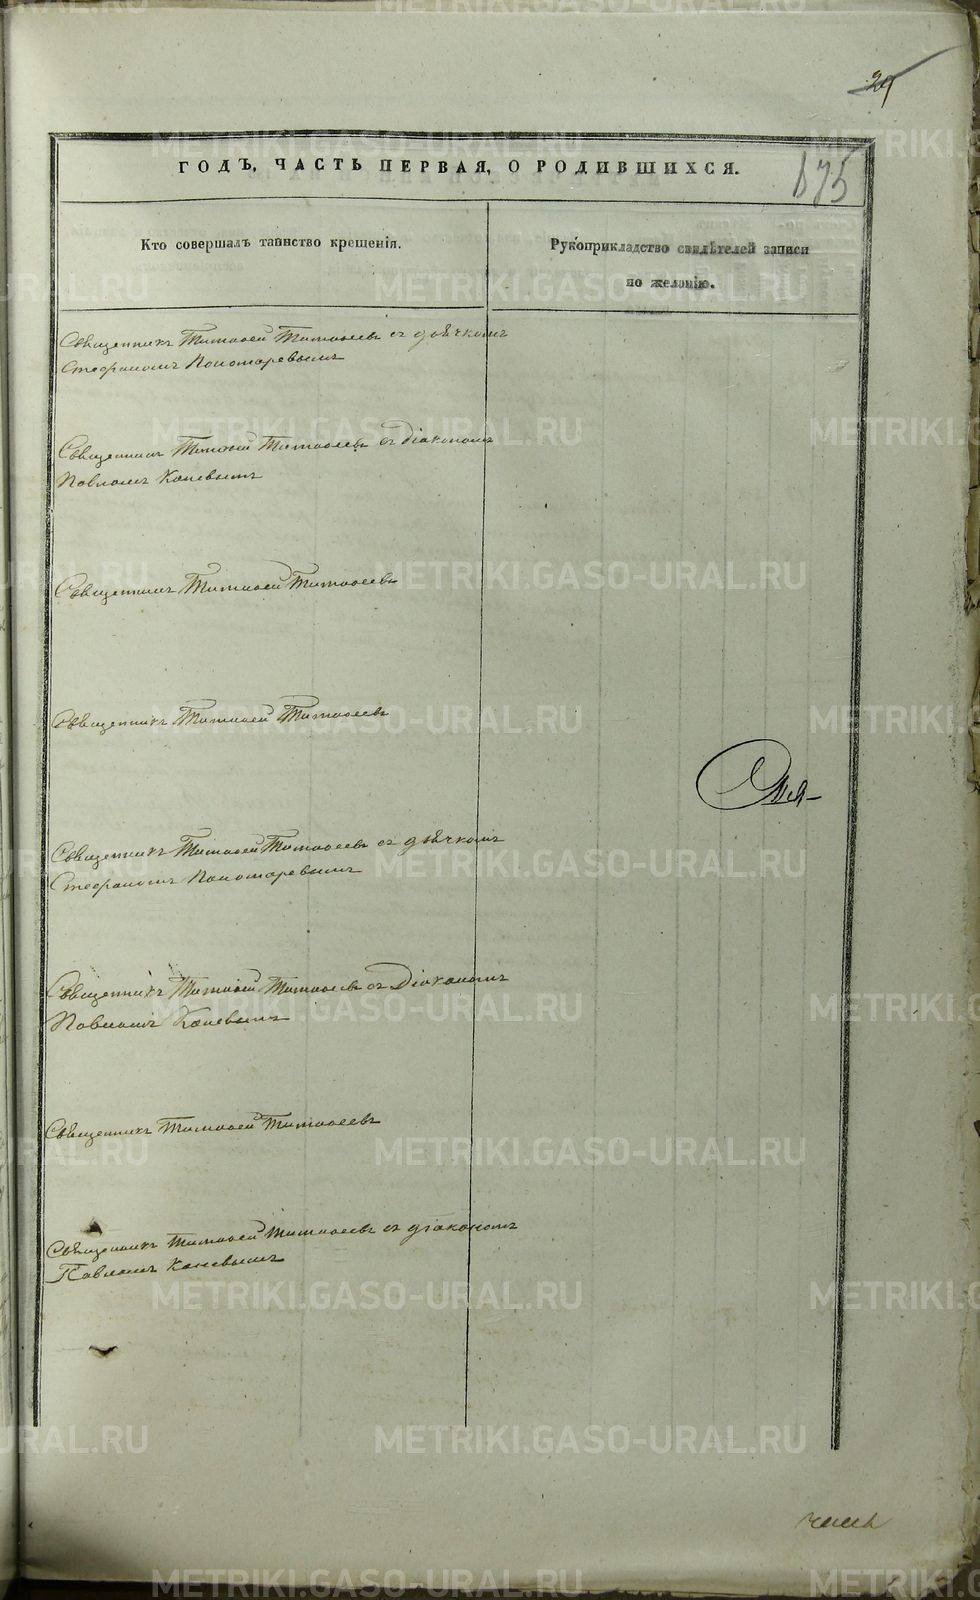 175
ГОДЪ, ЧАСТЬ ПЕРВАЯ, О РОДИВШИХСЯ.
Кто совершалъ таинство крещенія.
Рукоприкладство свидѣтелей записи
по желанію.
Священникъ Тимофей Тимофеевъ съ дьячкомъ
Стефаномъ Пономаревымъ
Священникъ Тимофей Тимофеевъ съ Діакономъ
Павломъ Каневымъ
Священникъ Тимофей Тимофеевъ
Священникъ Тимофей Тимофеевъ
Священникъ Тимофей Тимофеевъ съ дьячкомъ
Стефаномъ Пономаревымъ
Священникъ Тимофей Тимофеевъ съ Діакономъ
Павломъ Каневымъ
Священникъ Тимофей Тимофеевъ
Священникъ Тимофей Тимофеевъ съ діакономъ
Павломъ Каневымъ
METRIKI.GASO-URAL.RU